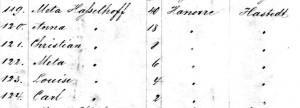 119. Meta Hasselhoff " 40 Hanovre Hastedt
120. Anna " 18 " "
121. Christian " 9 " "
122. Meta " 6 " "
123. Louise " 4 " "
124. Carl " 2 " "